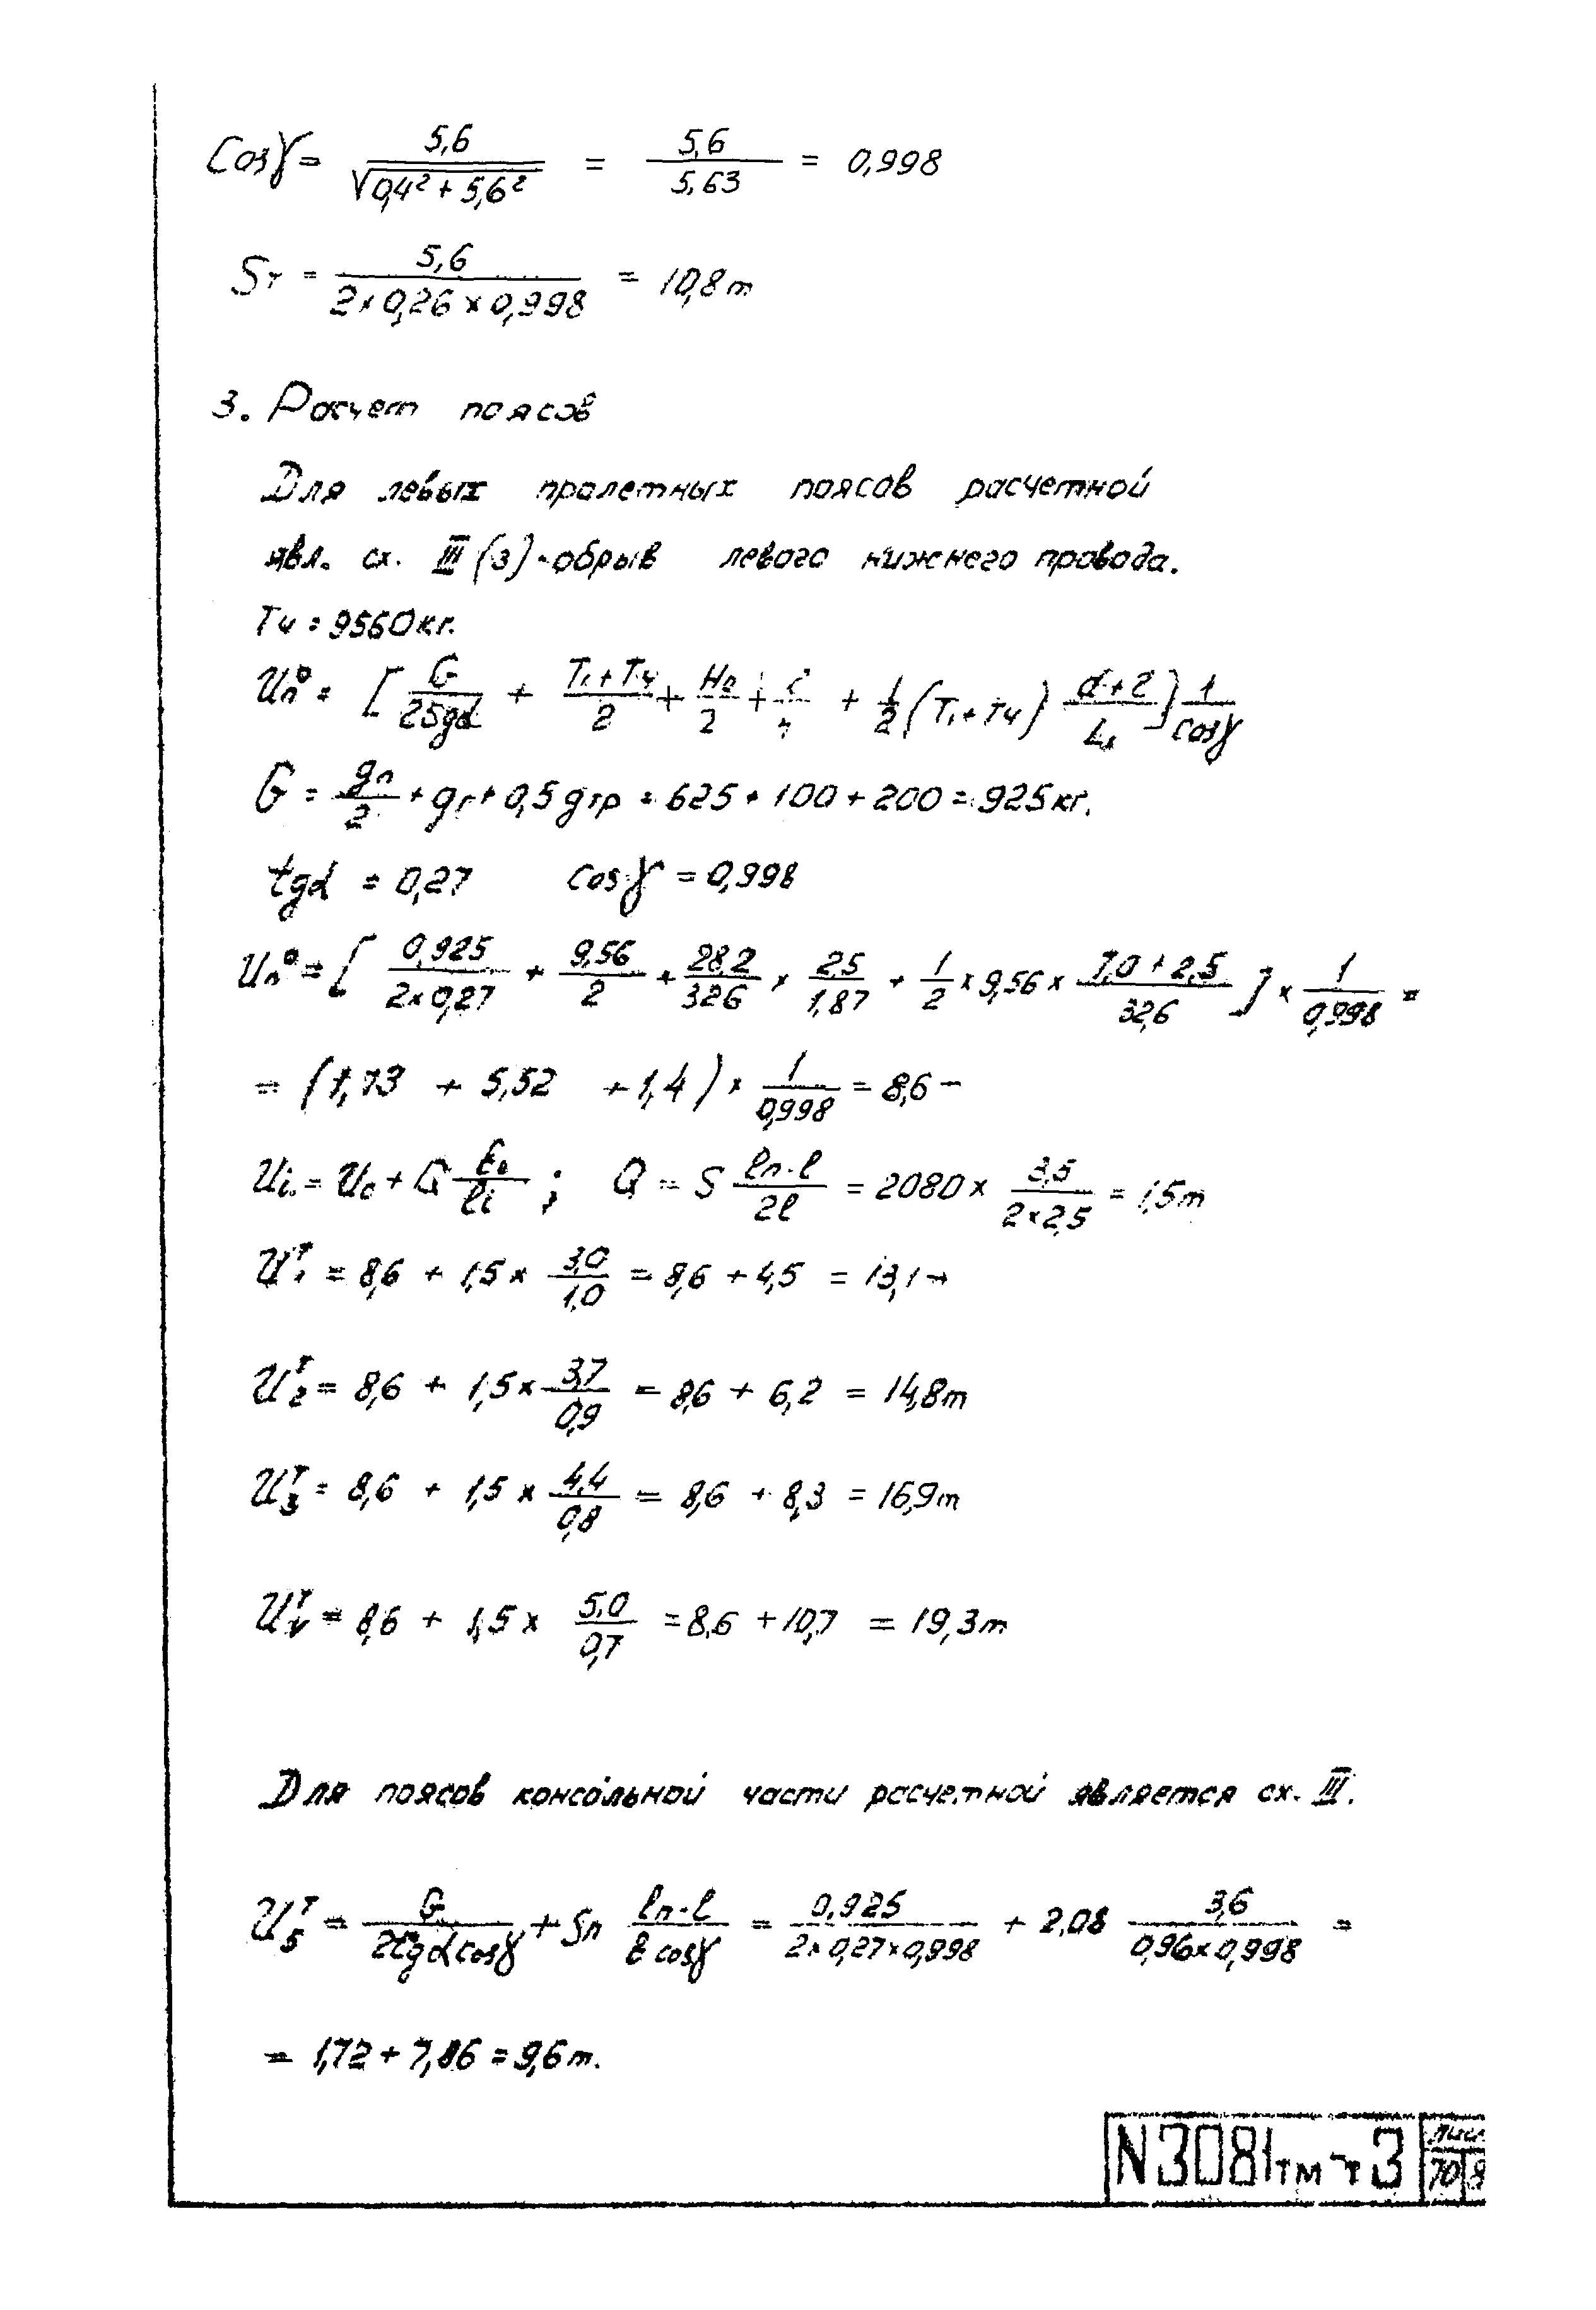 Cosγ = 5,6 / √(0,4² + 5,6²) = 5,6 / 5,63 = 0,998
Sт = 5,6 / (2 × 0,26 × 0,998) = 10,8т
3. Расчет поясов
Для левых пролетных поясов расчетной
явл. сх. III (3) - обрыв левого нижнего провода.
Tч = 9560кг.
Uп⁰ = [ G / 2tgα + (T₁ + Tч) / 2 + H₀ / 2 + + 1/2 (T₁ + Tч) (d + 2) / L₁ ] 1 / cosγ
G = gп / 2 + gг + 0,5 gтр = 625 + 100 + 200 = 925кг.
tgα = 0,27 cosγ = 0,998
Uп⁰ = [ 0,925 / (2 × 0,27) + 9,56 / 2 + 28,2 / 32,6 × 2,5 / 1,87 + 1/2 × 9,56 × (7,0 + 2,5) / 32,6 ] × 1 / 0,998 =
= (1,73 + 5,52 + 1,4) × 1 / 0,998 = 8,6т
Ui = U₀ + Q ℓ₀ / ℓi ; Q = S (ℓп - ℓ) / 2ℓ = 2080 × 3,5 / (2 × 2,5) = 1,5т
U₁ᵀ = 8,6 + 1,5 × 3,0 / 1,0 = 8,6 + 4,5 = 13,1т
U₂ᵀ = 8,6 + 1,5 × 3,7 / 0,9 = 8,6 + 6,2 = 14,8т
U₃ᵀ = 8,6 + 1,5 × 4,4 / 0,8 = 8,6 + 8,3 = 16,9т
U₄ᵀ = 8,6 + 1,5 × 5,0 / 0,7 = 8,6 + 10,7 = 19,3т
Для поясов консольной части расчетной является сх. III.
U₅ᵀ = G / 2tgα cosγ + Sп (ℓп - ℓ) / в cosγ = 0,925 / (2 × 0,27 × 0,998) + 2,08 3,6 / (0,96 × 0,998) =
= 1,72 + 7,86 = 9,6т.
N3081тм-т3
70 8